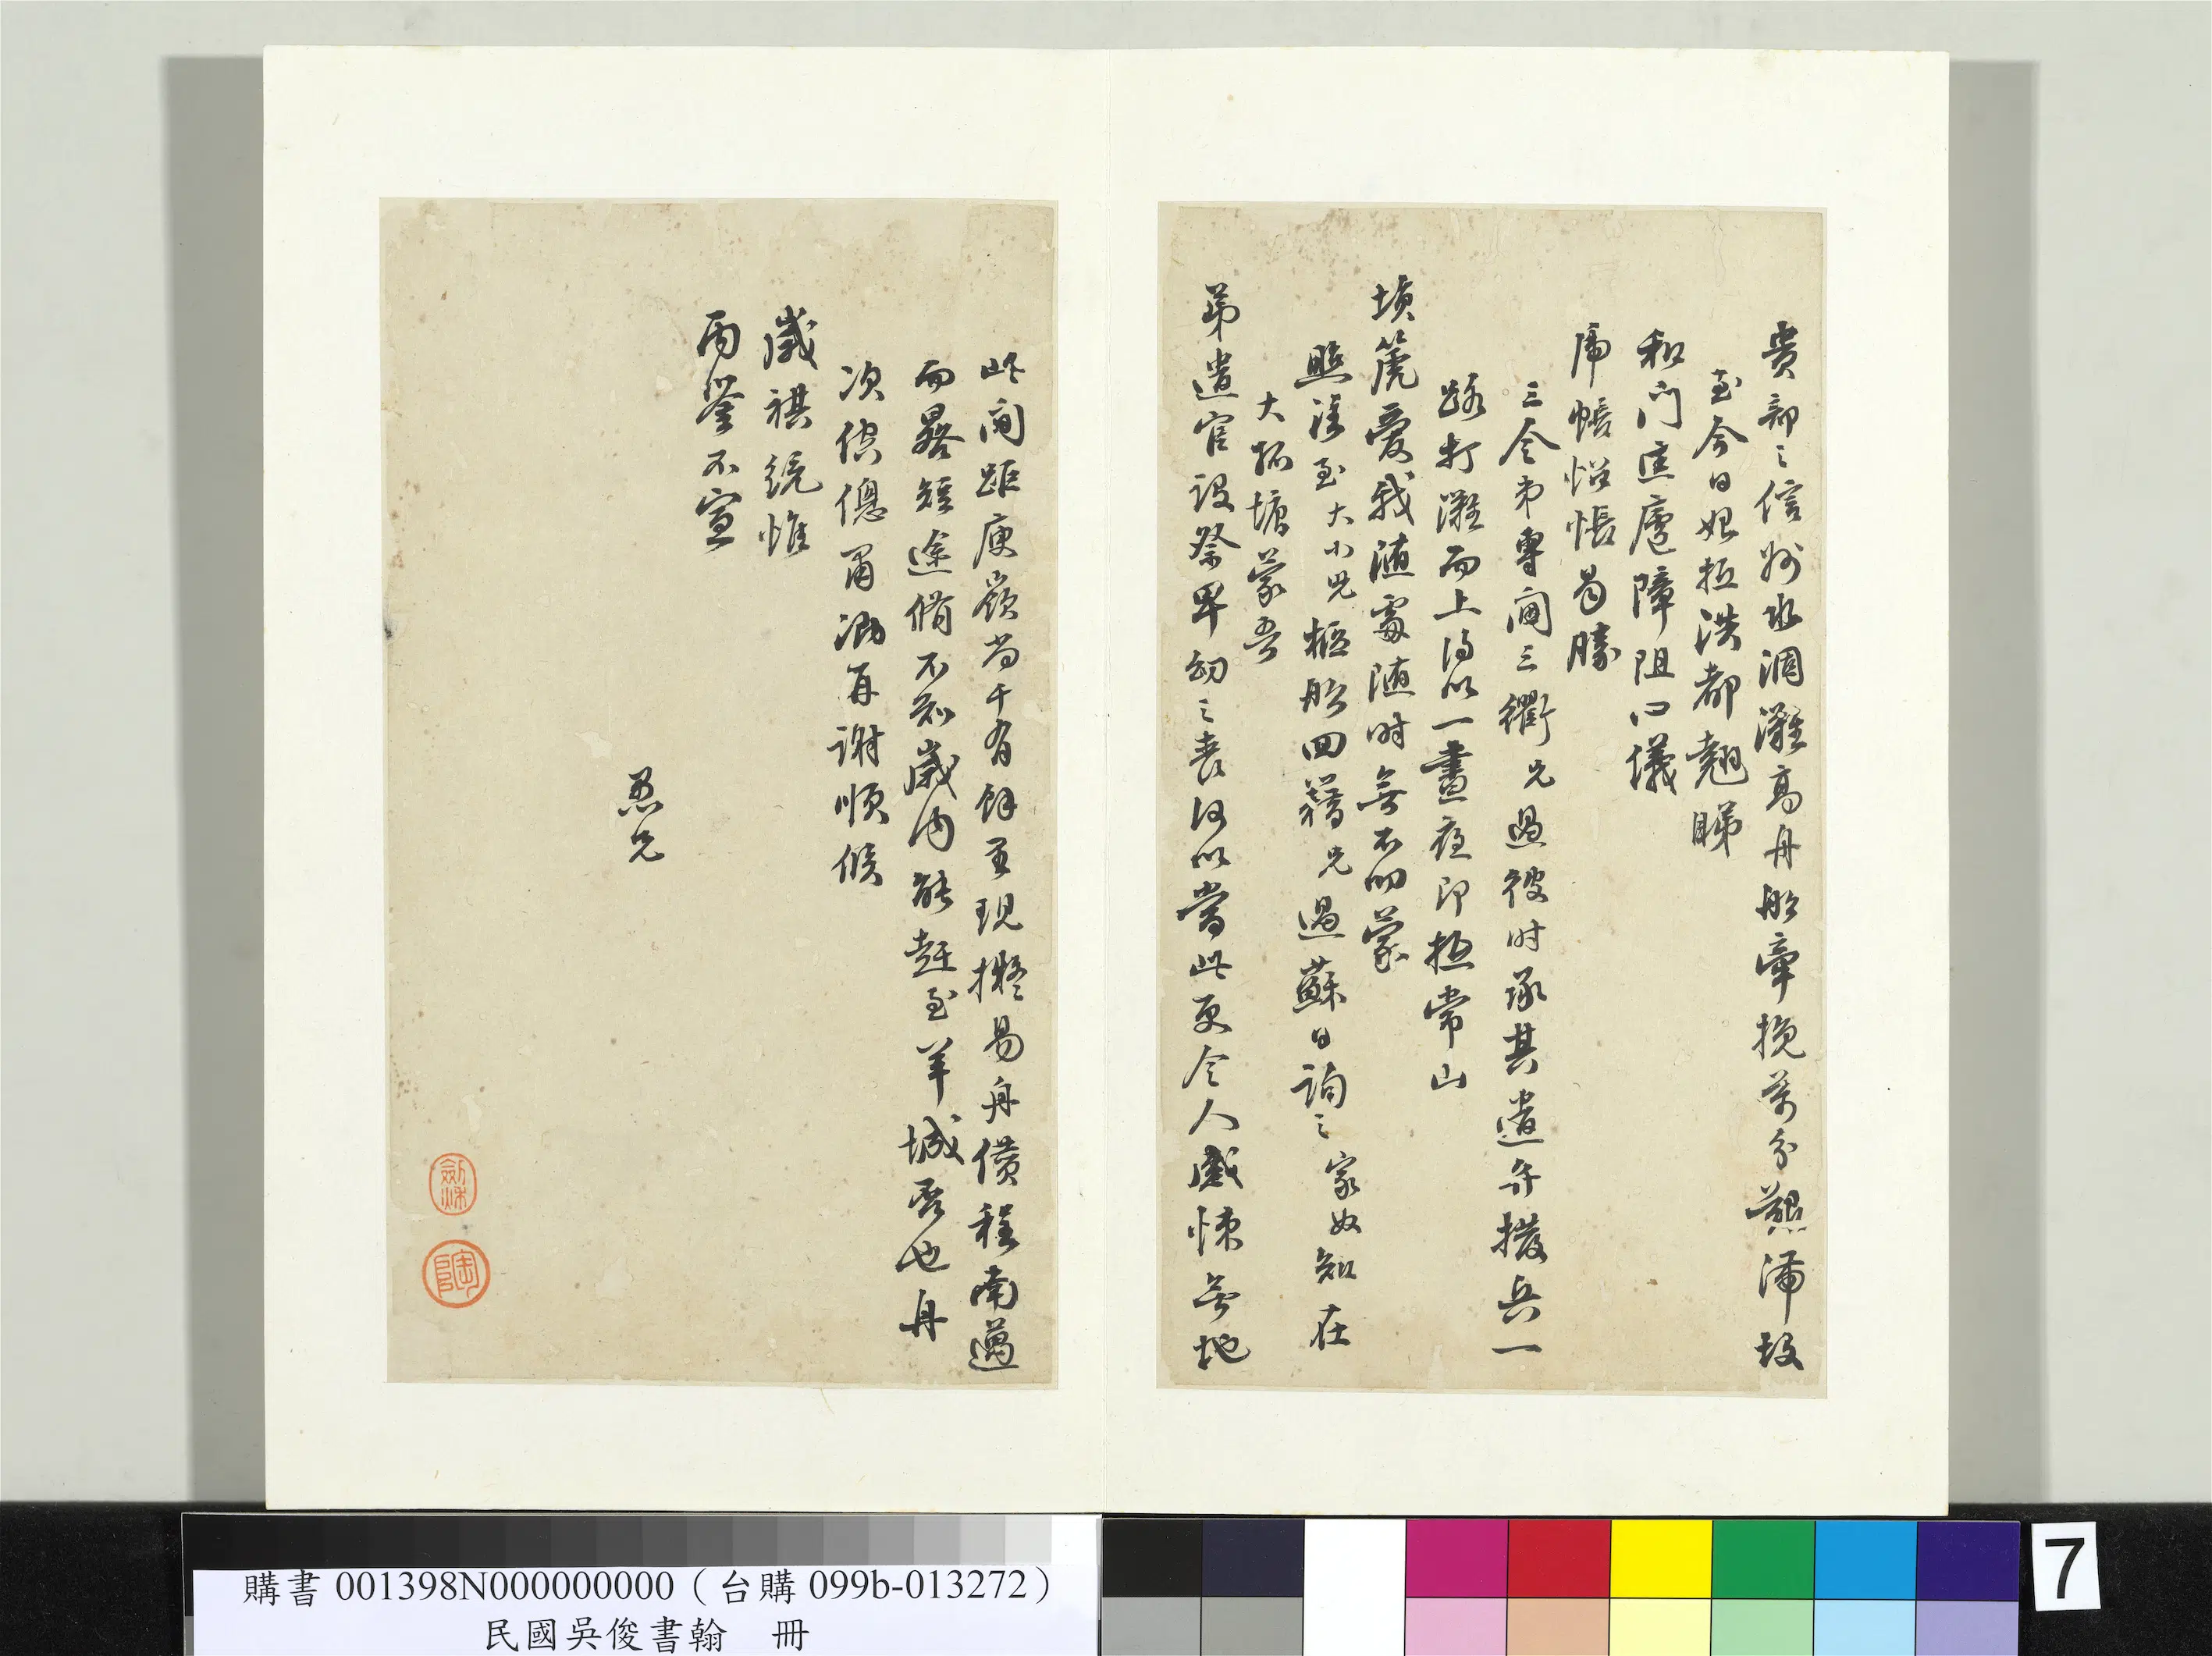 貴部之信州水涸灘高舟船牽挽萬分艱滯故
至今日始抵洪都翹睇
和門匡廬障阻心儀
席帳悵曷勝
三令弟專閫三衢兄過彼時承其遣弁撥兵一
路打灘而上得以一晝夜即抵常山
塤篪愛我隨處隨時無不叨蒙
照護至大小兒柩船回籍兄過蘇日詢之家奴知在
大孤塘蒙吾
弟遣官設祭卑幼之喪何以當此更令人感悚無地
此間距庾嶺尚千有餘里現擬易舟儹程南邁
而晷短途脩不知歲內能趕至羊城否也舟
次倥傯肅泐再謝順候
歲祺統惟
丙詧不宣
愚兄
陶
購書 001398N000000000（台購 099b-013272）
民國吳俊書翰 冊
7